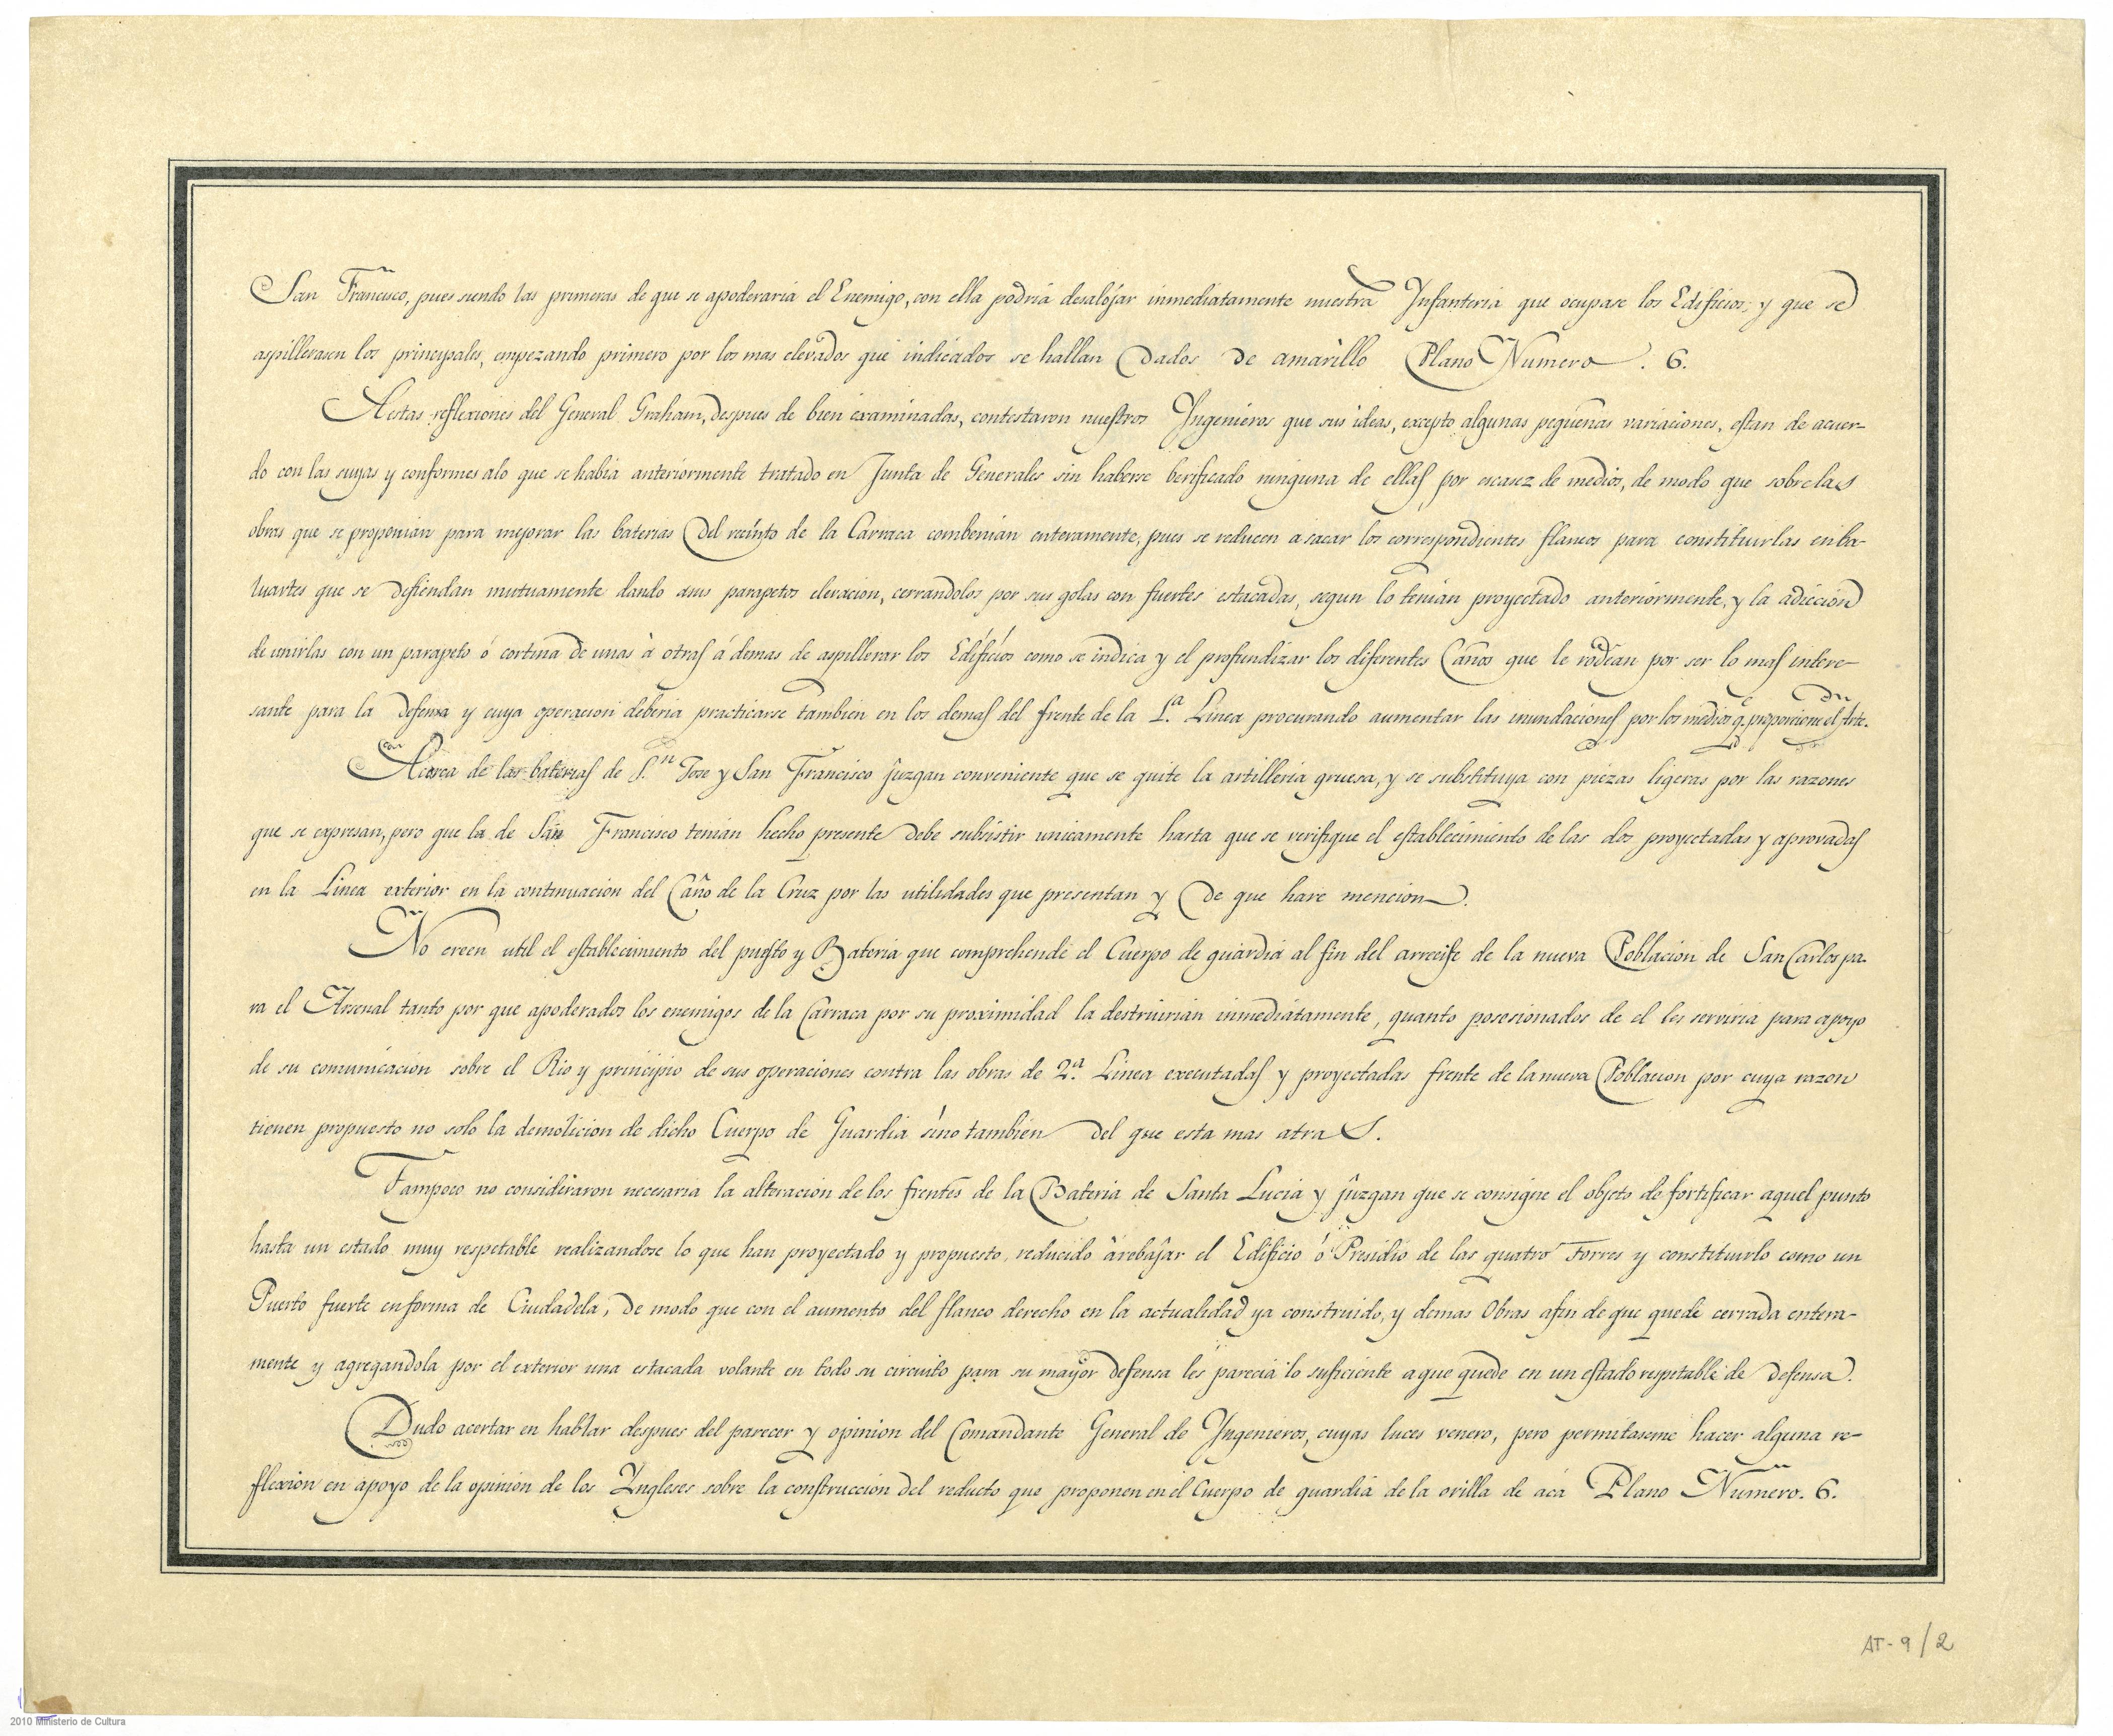 San Francisco, pues siendo las primeras de que se apoderaria el Enemigo, con ella podria desalojar inmediatamente nuestra Ynfanteria que ocupase los Edificios; y que se
aspillerasen los principales, empezando primero por los mas elevados que indicados se hallan Dados de amarillo Plano Numero. 6.
A estas reflexiones del General Graham, despues de bien examinadas, contestaron nuestros Yngenieros que sus ideas, excepto algunas pequeñas variaciones, estan de acuer-
do con las suyas y conformes alo que se habia anteriormente tratado en Junta de Generales sin haberse berificado ninguna de ellas por escasez de medios, de modo que sobre las
obras que se proponian para mejorar las baterias Del recinto de la Carraca combenian enteramente, pues se reducen a sacar los correspondientes flancos para constituirlas en ba-
luartes que se defiendan mutuamente dando asus parapetos elevacion, cerrandolos por sus golas con fuertes estacadas, segun lo tenian proyectado anteriormente, y la adiccion
de unirlas con un parapeto ó cortina de unas à otras á demas de aspillerar los Edificios como se indica y el profundizar los diferentes Caños que le rodean por ser lo mas intere-
sante para la Defensa y cuya operacion deberia practicarse tambien en los demas del frente de la 1.a Linea procurando aumentar las inundaciones por los medios q. proporcione el Arte.
Acerca de las baterias de S.n Jose y San Francisco juzgan conveniente que se quite la artilleria gruesa, y se substituya con piezas ligeras por las razones
que se expresan, pero que la de San Francisco tenian hecho presente debe subsistir unicamente hasta que se verifique el establecimiento de las dos proyectadas y aprovadas
en la Linea exterior en la continuacion del Caño de la Cruz por las utilidades que presentan y De que hare mencion.
No creen util el establecimiento del puesto y Bateria que comprehende el Cuerpo de guardia al fin del arrecife de la nueva Poblacion de San Carlos pa-
ra el Arsenal tanto por que apoderados los enemigos de la Carraca por su proximidad la destruirian inmediatamente, quanto posesionados de el les serviria para apoyo
de su comunicacion sobre el Rio y principio de sus operaciones contra las obras de 2.a Linea executadas y proyectadas frente de la nueva Poblacion por cuya razon
tienen propuesto no solo la demolicion de dicho Cuerpo de Guardia sino tambien Del que esta mas atras.
Tampoco no consideraron necesaria la alteracion de los frentes de la Bateria de Santa Lucia y juzgan que se consigue el objeto de fortificar aquel punto
hasta un estado muy respetable realizandose lo que han proyectado y propuesto, reducido à rebajar el Edificio ó Presidio de las quatro Torres y constituirlo como un
Puerto fuerte en forma de Ciudadela, De modo que con el aumento del flanco derecho en la actualidad ya construido, y demas Obras afin de que quede cerrada entera-
mente y agregandola por el exterior una estacada volante en todo su circuito para su mayor defensa les parecia lo suficiente a que quede en un estado respetable de Defensa.
Dudo acertar en hablar despues del parecer y opinion del Comandante General de Yngenieros, cuyas luces venero, pero permitaseme hacer alguna re-
flexion en apoyo de la opinion de los Yngleses sobre la construccion del reducto que proponen en el Cuerpo de guardia de la orilla de acá Plano Numero. 6.
AT-9/2
2010 Ministerio de Cultura